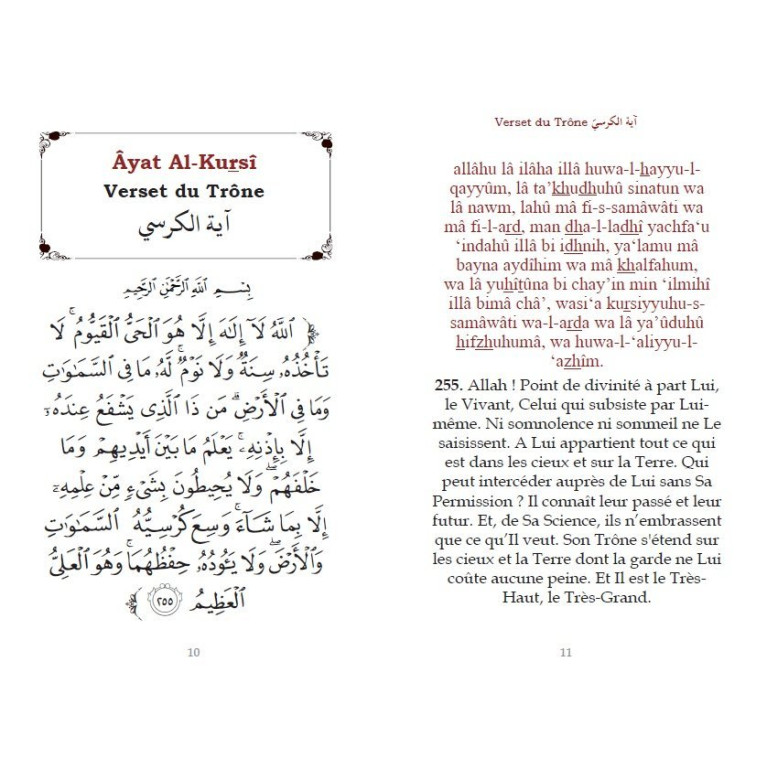 Âyat Al-Kursî
Verset du Trône
آية الكرسي
بِسْمِ اللَّهِ الرَّحْمَٰنِ الرَّحِيمِ
اللَّهُ لَآ إِلَٰهَ إِلَّا هُوَ الْحَىُّ الْقَيُّومُ ۚ لَا
تَأْخُذُهُۥ سِنَةٌ وَلَا نَوْمٌ ۚ لَّهُۥ مَا فِى السَّمَٰوَٰتِ
وَمَا فِى الْأَرْضِ ۗ مَن ذَا الَّذِى يَشْفَعُ عِندَهُۥٓ
إِلَّا بِإِذْنِهِۦ ۚ يَعْلَمُ مَا بَيْنَ أَيْدِيهِمْ وَمَا
خَلْفَهُمْ ۖ وَلَا يُحِيطُونَ بِشَىْءٍ مِّنْ عِلْمِهِۦٓ
إِلَّا بِمَا شَآءَ ۚ وَسِعَ كُرْسِيُّهُ السَّمَٰوَٰتِ
وَالْأَرْضَ ۖ وَلَا يَـُٔودُهُۥ حِفْظُهُمَا ۚ وَهُوَ الْعَلِىُّ
الْعَظِيمُ ٢٥٥
10
Verset du Trône آية الكرسيّ
allâhu lâ ilâha illâ huwa-l-hayyu-l-
qayyûm, lâ ta’khudhuhû sinatun wa
lâ nawm, lahû mâ fi-s-samâwâti wa
mâ fi-l-ard, man dha-l-ladhî yachfa‘u
‘indahû illâ bi idhnih, ya‘lamu mâ
bayna aydîhim wa mâ khalfahum,
wa lâ yuhîtûna bi chay’in min ‘ilmihî
illâ bimâ châ’, wasi‘a kursiyyuhu-s-
samâwâti wa-l-arda wa lâ ya’ûduhû
hifzhuhumâ, wa huwa-l-‘aliyyu-l-
‘azhîm.
255. Allah ! Point de divinité à part Lui,
le Vivant, Celui qui subsiste par Lui-
même. Ni somnolence ni sommeil ne Le
saisissent. A Lui appartient tout ce qui
est dans les cieux et sur la Terre. Qui
peut intercéder auprès de Lui sans Sa
Permission ? Il connaît leur passé et leur
futur. Et, de Sa Science, ils n’embrassent
que ce qu’Il veut. Son Trône s'étend sur
les cieux et la Terre dont la garde ne Lui
coûte aucune peine. Et Il est le Très-
Haut, le Très-Grand.
11